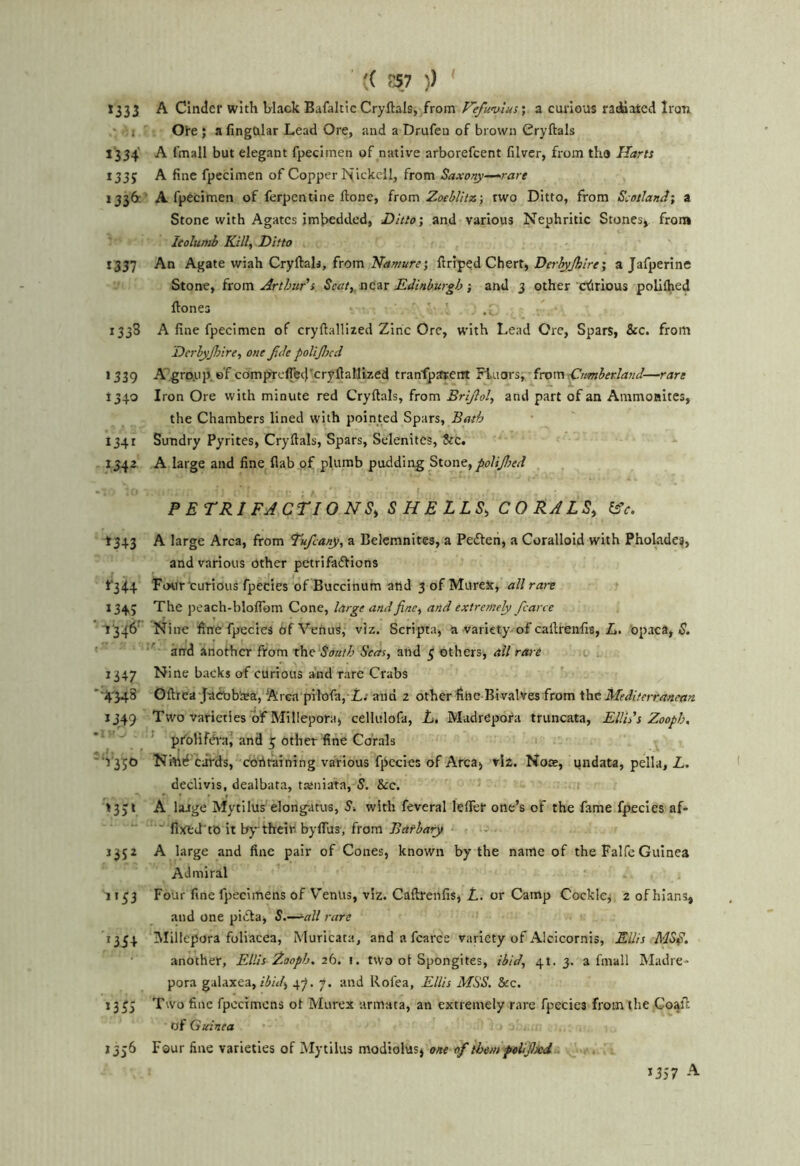 ( 257 )
1333 A Cinder with black Bafaltic Cryſtals, from Veſuvius; a curious radiated Iron
Ore; a ſingular Lead Ore, and a Druſen of brown Cryſtals
1334 A ſmall but elegant ſpecimen of native arboreſcent ſilver, from the Harts
1335 A fine ſpecimen of Copper Nickell, from Saxony—rare
1336 A ſpecimen of ſerpentine ſtone, from Zoeblitz; two Ditto, from Scotland; a
Stone with Agates imbedded, Ditto; and various Nephritic Stones, from
Icolumb Kill, Ditto
1337 An Agate wiah Cryſtals, from Namure; ſtriped Chert, Derbyſhire; a Jaſperine
Stone, from Arthur's Seat, near Edinburgh; and 3 other curious poliſhed
ſtones
1338 A fine ſpecimen of cryſtallized Zinc Ore, with Lead Ore, Spars, &c. from
Derbyſhire, one ſide poliſhed
1339 A group of compreſſed cryſtallized tranſparent Fluors, from Cumberland—rare
1340 Iron Ore with minute red Cryſtals, from Briſtol, and part of an Ammonites,
the Chambers lined with pointed Spars, Bath
1341 Sundry Pyrites, Cryſtals, Spars, Selenites, &c.
1342 A large and fine ſlab of plumb pudding Stone, poliſhed
PETRIFACTIONS, SHELLS, CORALS, &c.
1343 A large Arca, from Tuſcany, a Belemnites, a Pecten, a Coralloid with Pholades,
and various other petrifactions
1344 Four curious ſpecies of Buccinum and 3 of Murex, all rare
1345 The peach-bloſſom Cone, large and fine, and extremely ſcarce
1346 Nine fine ſpecies of Venus, viz. Scripta, a variety of caſtrenſis, L. opaca, S.
and another from the South Seas, and 5 others, all rare
1347 Nine backs of curious and rare Crabs
4348 Oſtrea Jacobæa, Arca piloſa, L. and 2 other fine Bivalves from the Mediterranean
1349 Two varieties of Millepora, celluloſa, L. Madrepora truncata, Ellis's Zooph.
prolifera, and 5 other fine Corals
1350 Nine cards, containing various ſpecies of Arca, viz. Noæ, undata, pella, L.
declivis, dealbata, tæniata, S. &c.
1351 A large Mytilus elongatus, S. with ſeveral leſſer one's of the ſame ſpecies af-
fixed to it by their byſſus, from Barbary
1352 A large and fine pair of Cones, known by the name of the Falſe Guinea
Admiral
1153 Four fine ſpecimens of Venus, viz. Caſtrenſis, L. or Camp Cockle, 2 of hians,
and one picta, S.—all rare
1354 Millepora foliacea, Muricata, and a ſcarce variety of Alcicornis, Ellis MSS.
another, Ellis Zooph. 26. 1. two of Spongites, ibid, 41. 3. a ſmall Madre-
pora galaxea, ibid, 47. 7. and Roſea, Ellis MSS. &c.
1355 Two fine ſpecimens of Murex armata, an extremely rare ſpecies from the Coaſt
of Guinea
1356 Four fine varieties of Mytilus modiolus, one of them poliſhed
1357 A